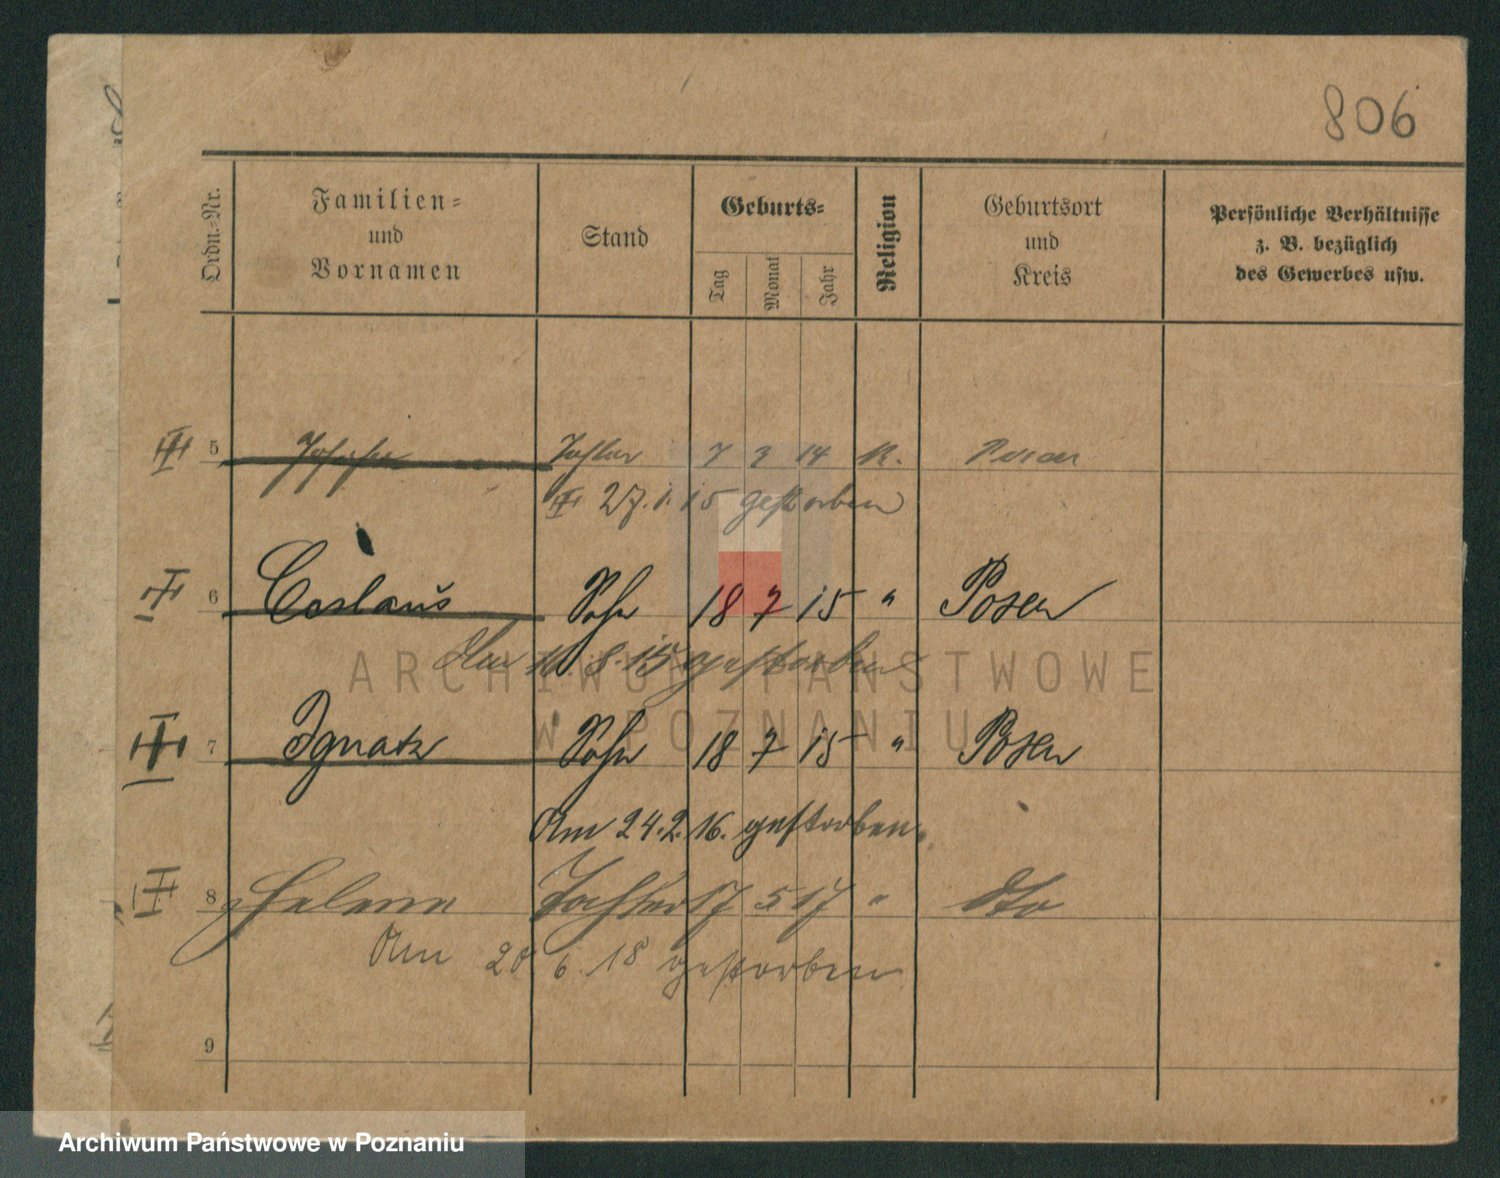 806
Ordn.-Nr.
Familien-
und
Vornamen
Stand
Geburts-
Tag
Monat
Jahr
Religion
Geburtsort
und
Kreis
Persönliche Verhältnisse
z. B. bezüglich
des Gewerbes usw.
5 Tochter 7 3 14 K. Posen
27. 1. 15 gestorben
6 Ceslaus Sohn 18 7 15 " Posen
Am 8. 15 gestorben
ARCHIWUM PAŃSTWOWE
W POZNANIU
7 Ignatz Sohn 18 7 15 " Posen
Am 24. 2. 16. gestorben.
8 Helene Tochter 17 5 17 " dto
Am 20 6. 18 gestorben
9
Archiwum Państwowe w Poznaniu